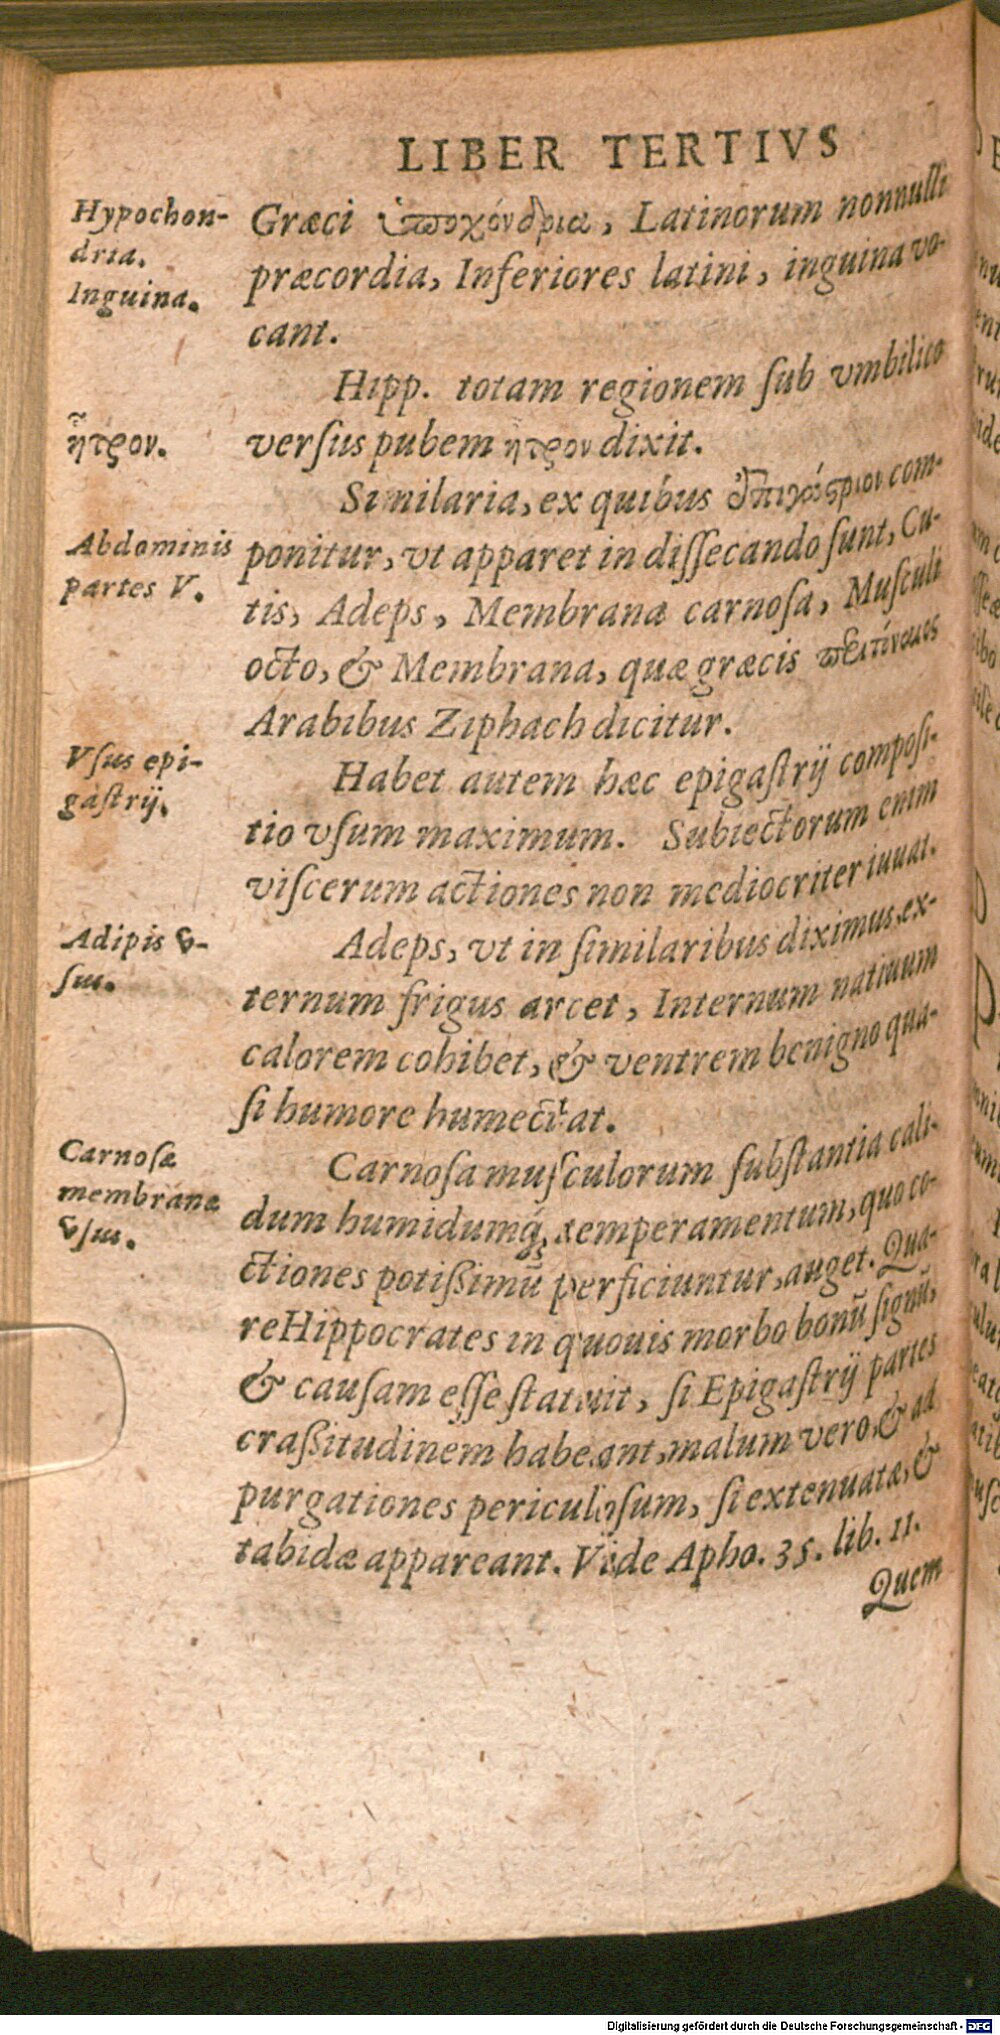 LIBER TERTIVS
Hypochon-
dria.
Inguina.
Græci ὑποχόνδρια, Latinorum nonnulli
præcordia, Inferiores latini, inguina vo-
cant.
Hipp. totam regionem ſub vmbilico
ἦτρον.
verſus pubem ἦτρον dixit.
Similaria, ex quibus ἐπιγάστριον com-
Abdominis
partes V.
ponitur, vt apparet in diſſecando ſunt, Cu-
tis, Adeps, Membrana carnoſa, Muſculi
octo, & Membrana, quæ græcis
Arabibus Ziphach dicitur.
Vſus epi-
gaſtrij.
Habet autem hæc epigaſtrij compoſi-
tio vſum maximum. Subiectorum enim
viſcerum actiones non mediocriter iuuat.
Adipis v-
ſus.
Adeps, vt in ſimilaribus diximus, ex-
ternum frigus arcet, Internum natiuum
calorem cohibet, & ventrem benigno qua-
ſi humore humectat.
Carnoſæ
membranæ
vſus.
Carnoſa muſculorum ſubſtantia cali-
dum humidumq́; temperamentum, quo co-
ctiones potißimũ perficiuntur, auget. Qua-
re Hippocrates in quouis morbo bonũ ſignũ,
& cauſam eſſe ſtatuit, ſi Epigaſtrij partes
craßitudinem habeant, malum vero, & ad
purgationes periculoſum, ſi extenuatæ, &
tabidæ appareant. Vide Apho. 35. lib. 11.
Quem
Digitalisierung gefördert durch die Deutsche Forschungsgemeinschaft - DFG